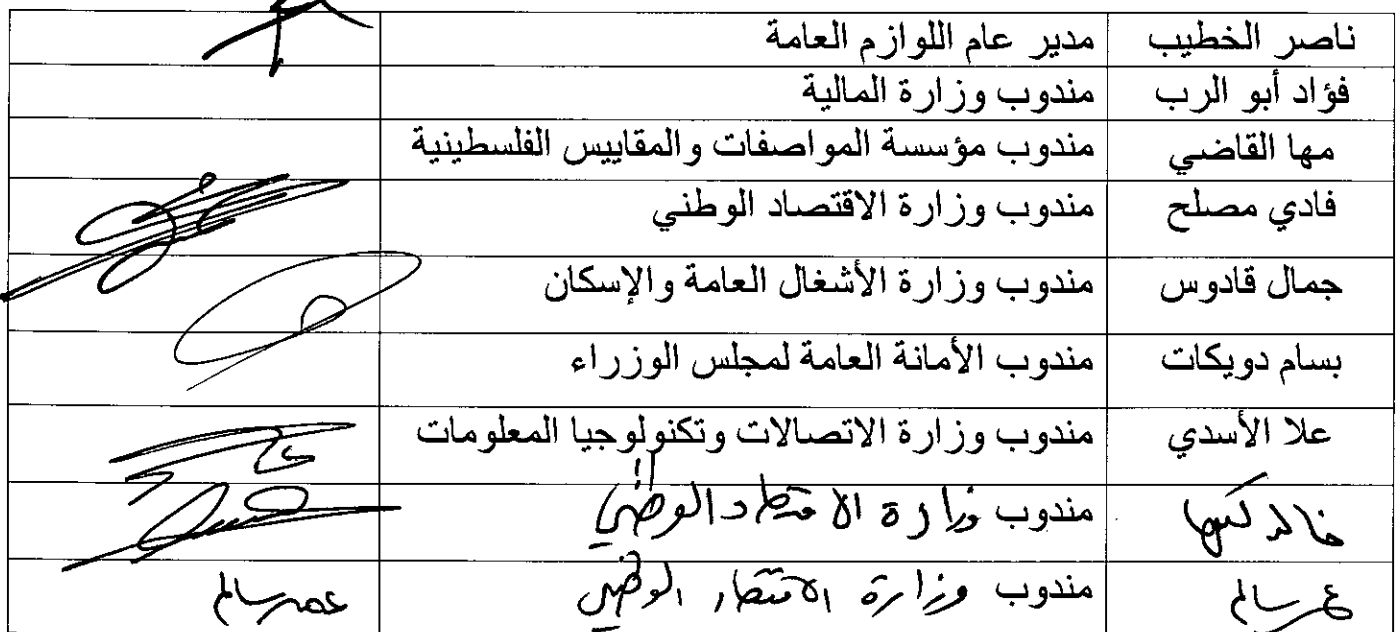 ناصر الخطيب مدير عام اللوازم العامة
فؤاد أبو الرب مندوب وزارة المالية
مها القاضي مندوب مؤسسة المواصفات والمقاييس الفلسطينية
فادي مصلح مندوب وزارة الاقتصاد الوطني
جمال قادوس مندوب وزارة الأشغال العامة والإسكان
بسام دويكات مندوب الأمانة العامة لمجلس الوزراء
علا الأسدي مندوب وزارة الاتصالات وتكنولوجيا المعلومات
خالد مندوب وزارة الاقتصاد الوطني
عمر سالم مندوب وزارة الاقتصاد الوطني عمر سالم